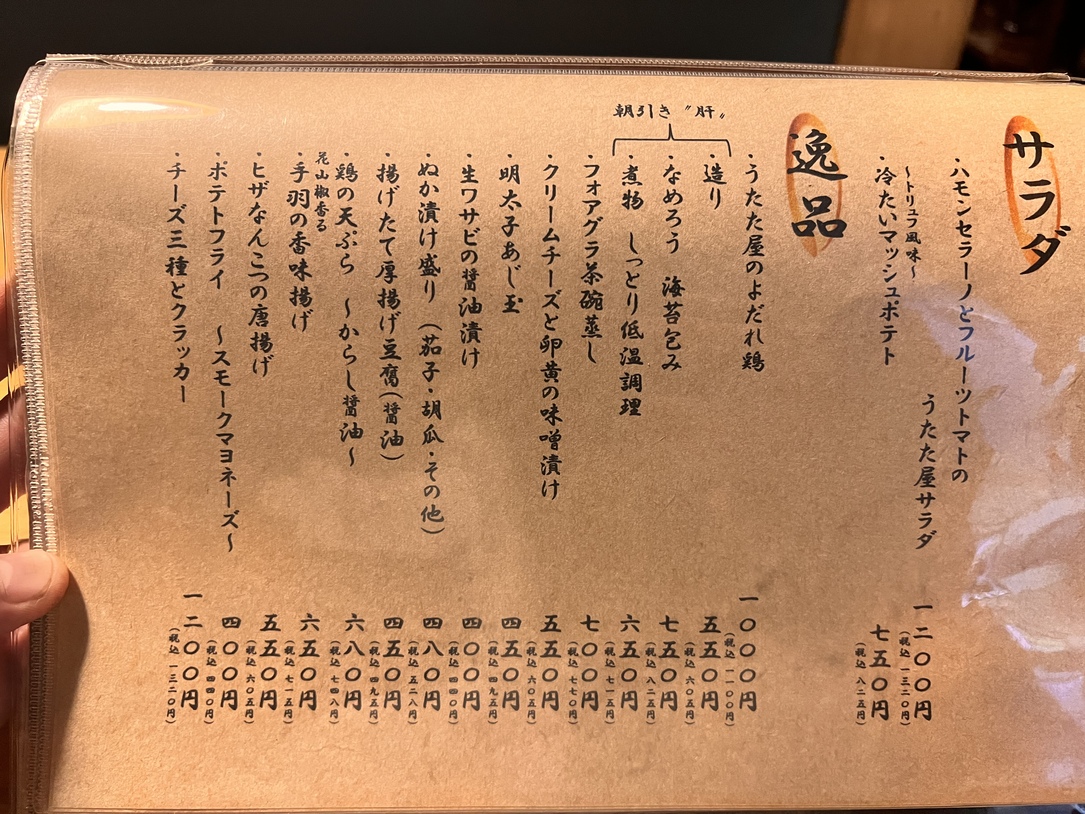 サラダ
・ハモンセラーノとフルーツトマトの
うたた屋サラダ
一二〇〇円
(税込 一三二〇円)
～トリュフ風味～
・冷たいマッシュポテト
七五〇円
(税込 八二五円)
逸品
・うたた屋のよだれ鶏
一〇〇〇円
(税込 一一〇〇円)
朝引き〝肝〟
・造り
五五〇円
(税込 六〇五円)
・なめろう 海苔包み
七五〇円
(税込 八二五円)
・煮物 しっとり低温調理
六五〇円
(税込 七一五円)
・フォアグラ茶碗蒸し
七〇〇円
(税込 七七〇円)
・クリームチーズと卵黄の味噌漬け
五五〇円
(税込 六〇五円)
・明太子あじ玉
四五〇円
(税込 四九五円)
・生ワサビの醤油漬け
四〇〇円
(税込 四四〇円)
・ぬか漬け盛り (茄子・胡瓜・その他)
四八〇円
(税込 五二八円)
・揚げたて厚揚げ豆腐(醤油)
四五〇円
(税込 四九五円)
・鶏の天ぷら ～からし醤油～
六八〇円
(税込 七四八円)
花山椒香る
・手羽の香味揚げ
六五〇円
(税込 七一五円)
・ヒザなんこつの唐揚げ
五五〇円
(税込 六〇五円)
・ポテトフライ ～スモークマヨネーズ～
四〇〇円
(税込 四四〇円)
・チーズ三種とクラッカー
一二〇〇円
(税込 一三二〇円)